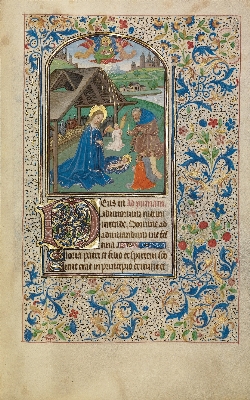 Deus in
adiutorium meum
intende. Domine ad
adiuuandum me fes
tina
Gloria patri et filio et spiritui
erat in principio et nunc et